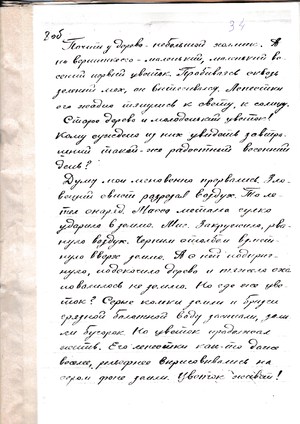 2 об
34
Почти у дерева - небольшой холмик. А
на вершинке его - маленький, маленький ве-
сенний первый цветок. Пробиваясь сквозь
зелёный мох, он выглянул. Лепестки
его жадно тянулись к свету, к солнцу.
Старое дерево и молоденький цветок!
Кому суждено из них увидеть завтра-
шний такой-же радостный весенний
день?
Думы мои мгновенно прервались. Зло-
вещий свист разрезал воздух. То ле-
тел снаряд. Масса металла гулко
ударила в землю. Миг. Закружило, рва-
нуло воздух. Черным столбом взмет-
нуло вверх землю. А с ней подверг-
нуло, подкосило дерево и тяжело ока-
повалилось на землю. Но где же цве-
ток? Серые комья земли и брызги
грязной болотной воды
ли бугорок. Но цветок продолжал
жить. Его лепестки как-то даже
веселее, рельефнее вырисовывались на
сером фоне земли. Цветок живёт!